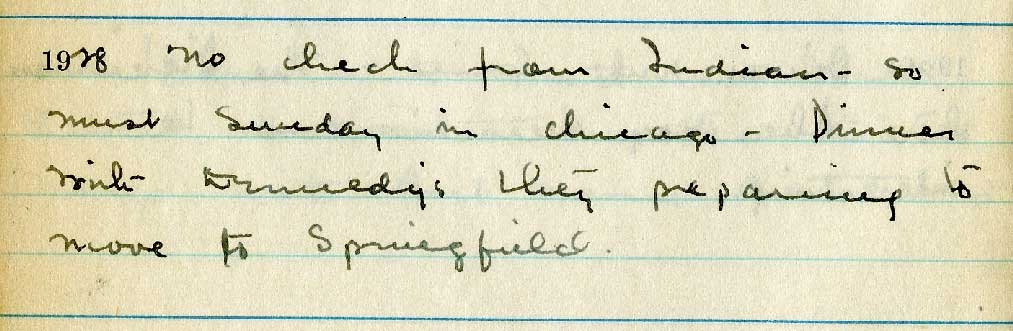 1928 No check from Indian - so
must Sunday in Chicago - Dinner
with Kennedy's they preparing to
move to Springfield.